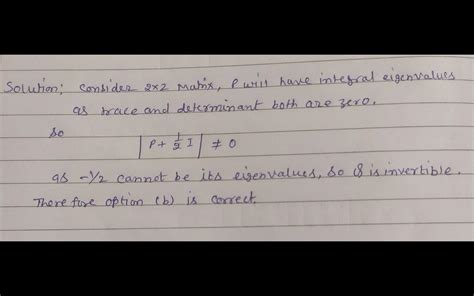 Solution: Consider 2x2 Matrix, P will have integral eigenvalues
as trace and determinant both are zero.
So
|P + 1/2 I| ≠ 0
as -1/2 cannot be its eigenvalues, so Q is invertible.
Therefore option (b) is correct.